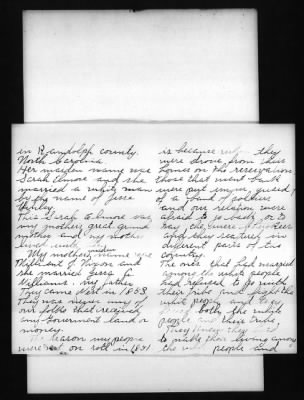 in Randolph county.
North Carolina.
Her maiden name was
Sarah Elmore and she
married a white man
by the name of Jesse
This Sarah Elmore was
my mothers great grand
mother and my mother
lived with
My mothers maiden name
Millisent J. Nixon and
she married Jessa
Williams, my father
They came West in 1853
They was never any of
our folks that received
any Goverment land or
money.
The reason my people
were not on roll in 1851
is because they
were drove from their
homes on the reservation
those that went back
were put under guard
of a band of soldiers
and our relation were
afraid to go back or to
say they were
and they scattered in
different parts of the
country.
The ones that had married
among the white people
had refused to go with
their tribe and fight the
white people and
both the white
people and their tribe.
They they
to make their living among
the people and